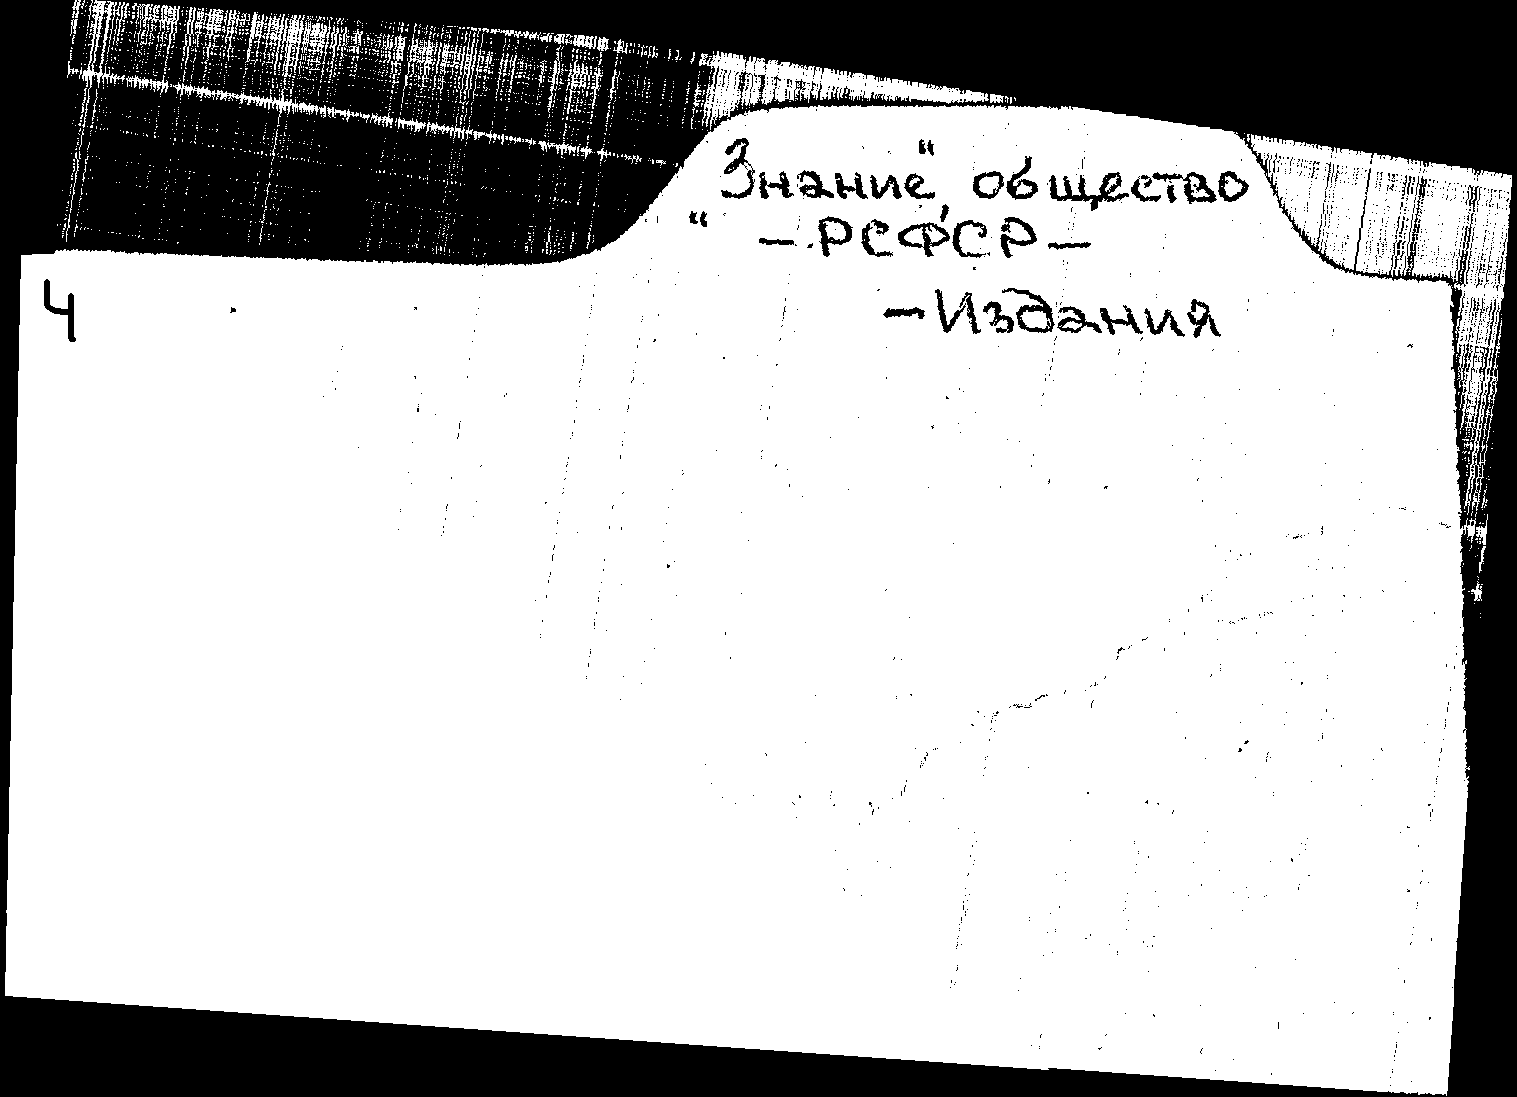 "Знание", общество
— РСФСР —
— Издания
4